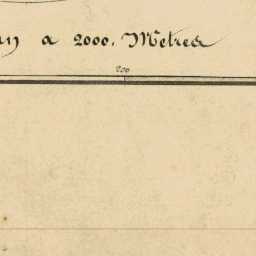 a 2000. Metres
200